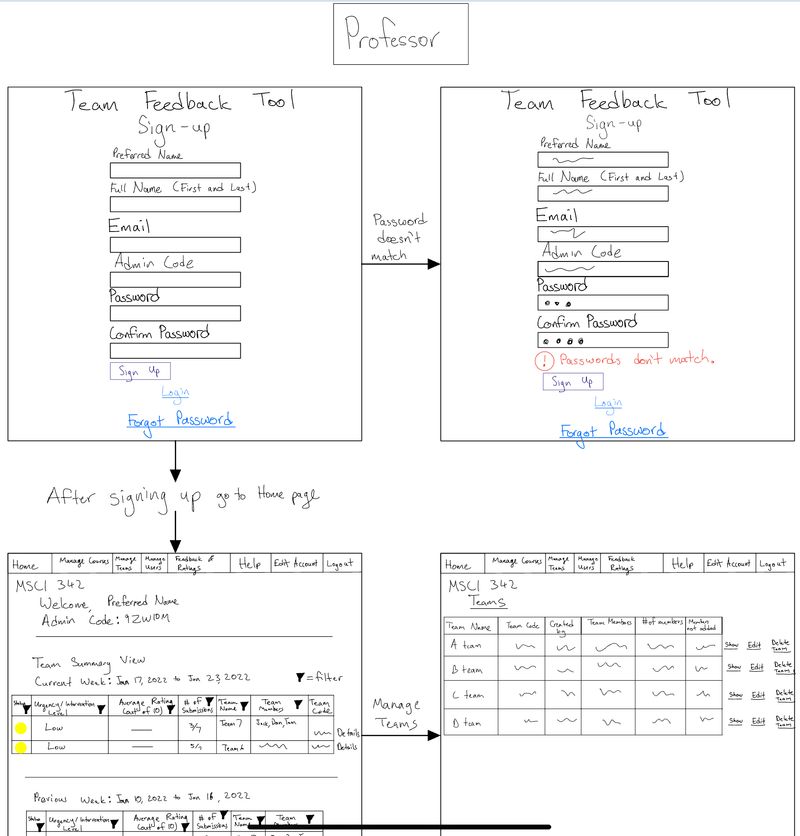 Professor
Team Feedback Tool
Sign-up
Preferred Name
Full Name (First and Last)
Email
Admin Code
Password
Confirm Password
Sign Up
Login
Forgot Password
Password
doesn't
match
Team Feedback Tool
Sign-up
Preferred Name
Full Name (First and Last)
Email
Admin Code
Password
Confirm Password
! Passwords don't match.
Sign Up
Login
Forgot Password
After signing up go to Home page
Home Manage Courses Manage Teams Manage Users Feedback & Ratings Help Edit Account Logout
MSCI 342
Welcome, Preferred Name
Admin Code: 9ZW10M
Team Summary View
Current Week: Jan 17, 2022 to Jan 23, 2022
=filter
Status Urgency/Intervention Level Average Rating (out of 10) # of Submissions Team Name Team Members Team Code
Low 3/7 Team 7 Jack, Dan, Tom Details
Low 5/7 Team 6 Details
Previous Week: Jan 10, 2022 to Jan 16, 2022
Status Urgency/Intervention Level Average Rating (out of 10) # of Submissions Team Name Team
Manage
Teams
Home Manage Courses Manage Teams Manage Users Feedback Ratings Help Edit Account Logout
MSCI 342
Teams
Team Name Team Code Created Team Members # of members Members not added
A team Show Edit Delete Team
B team Show Edit Delete Team
C team Show Edit Delete Team
D team Show Edit Delete Team